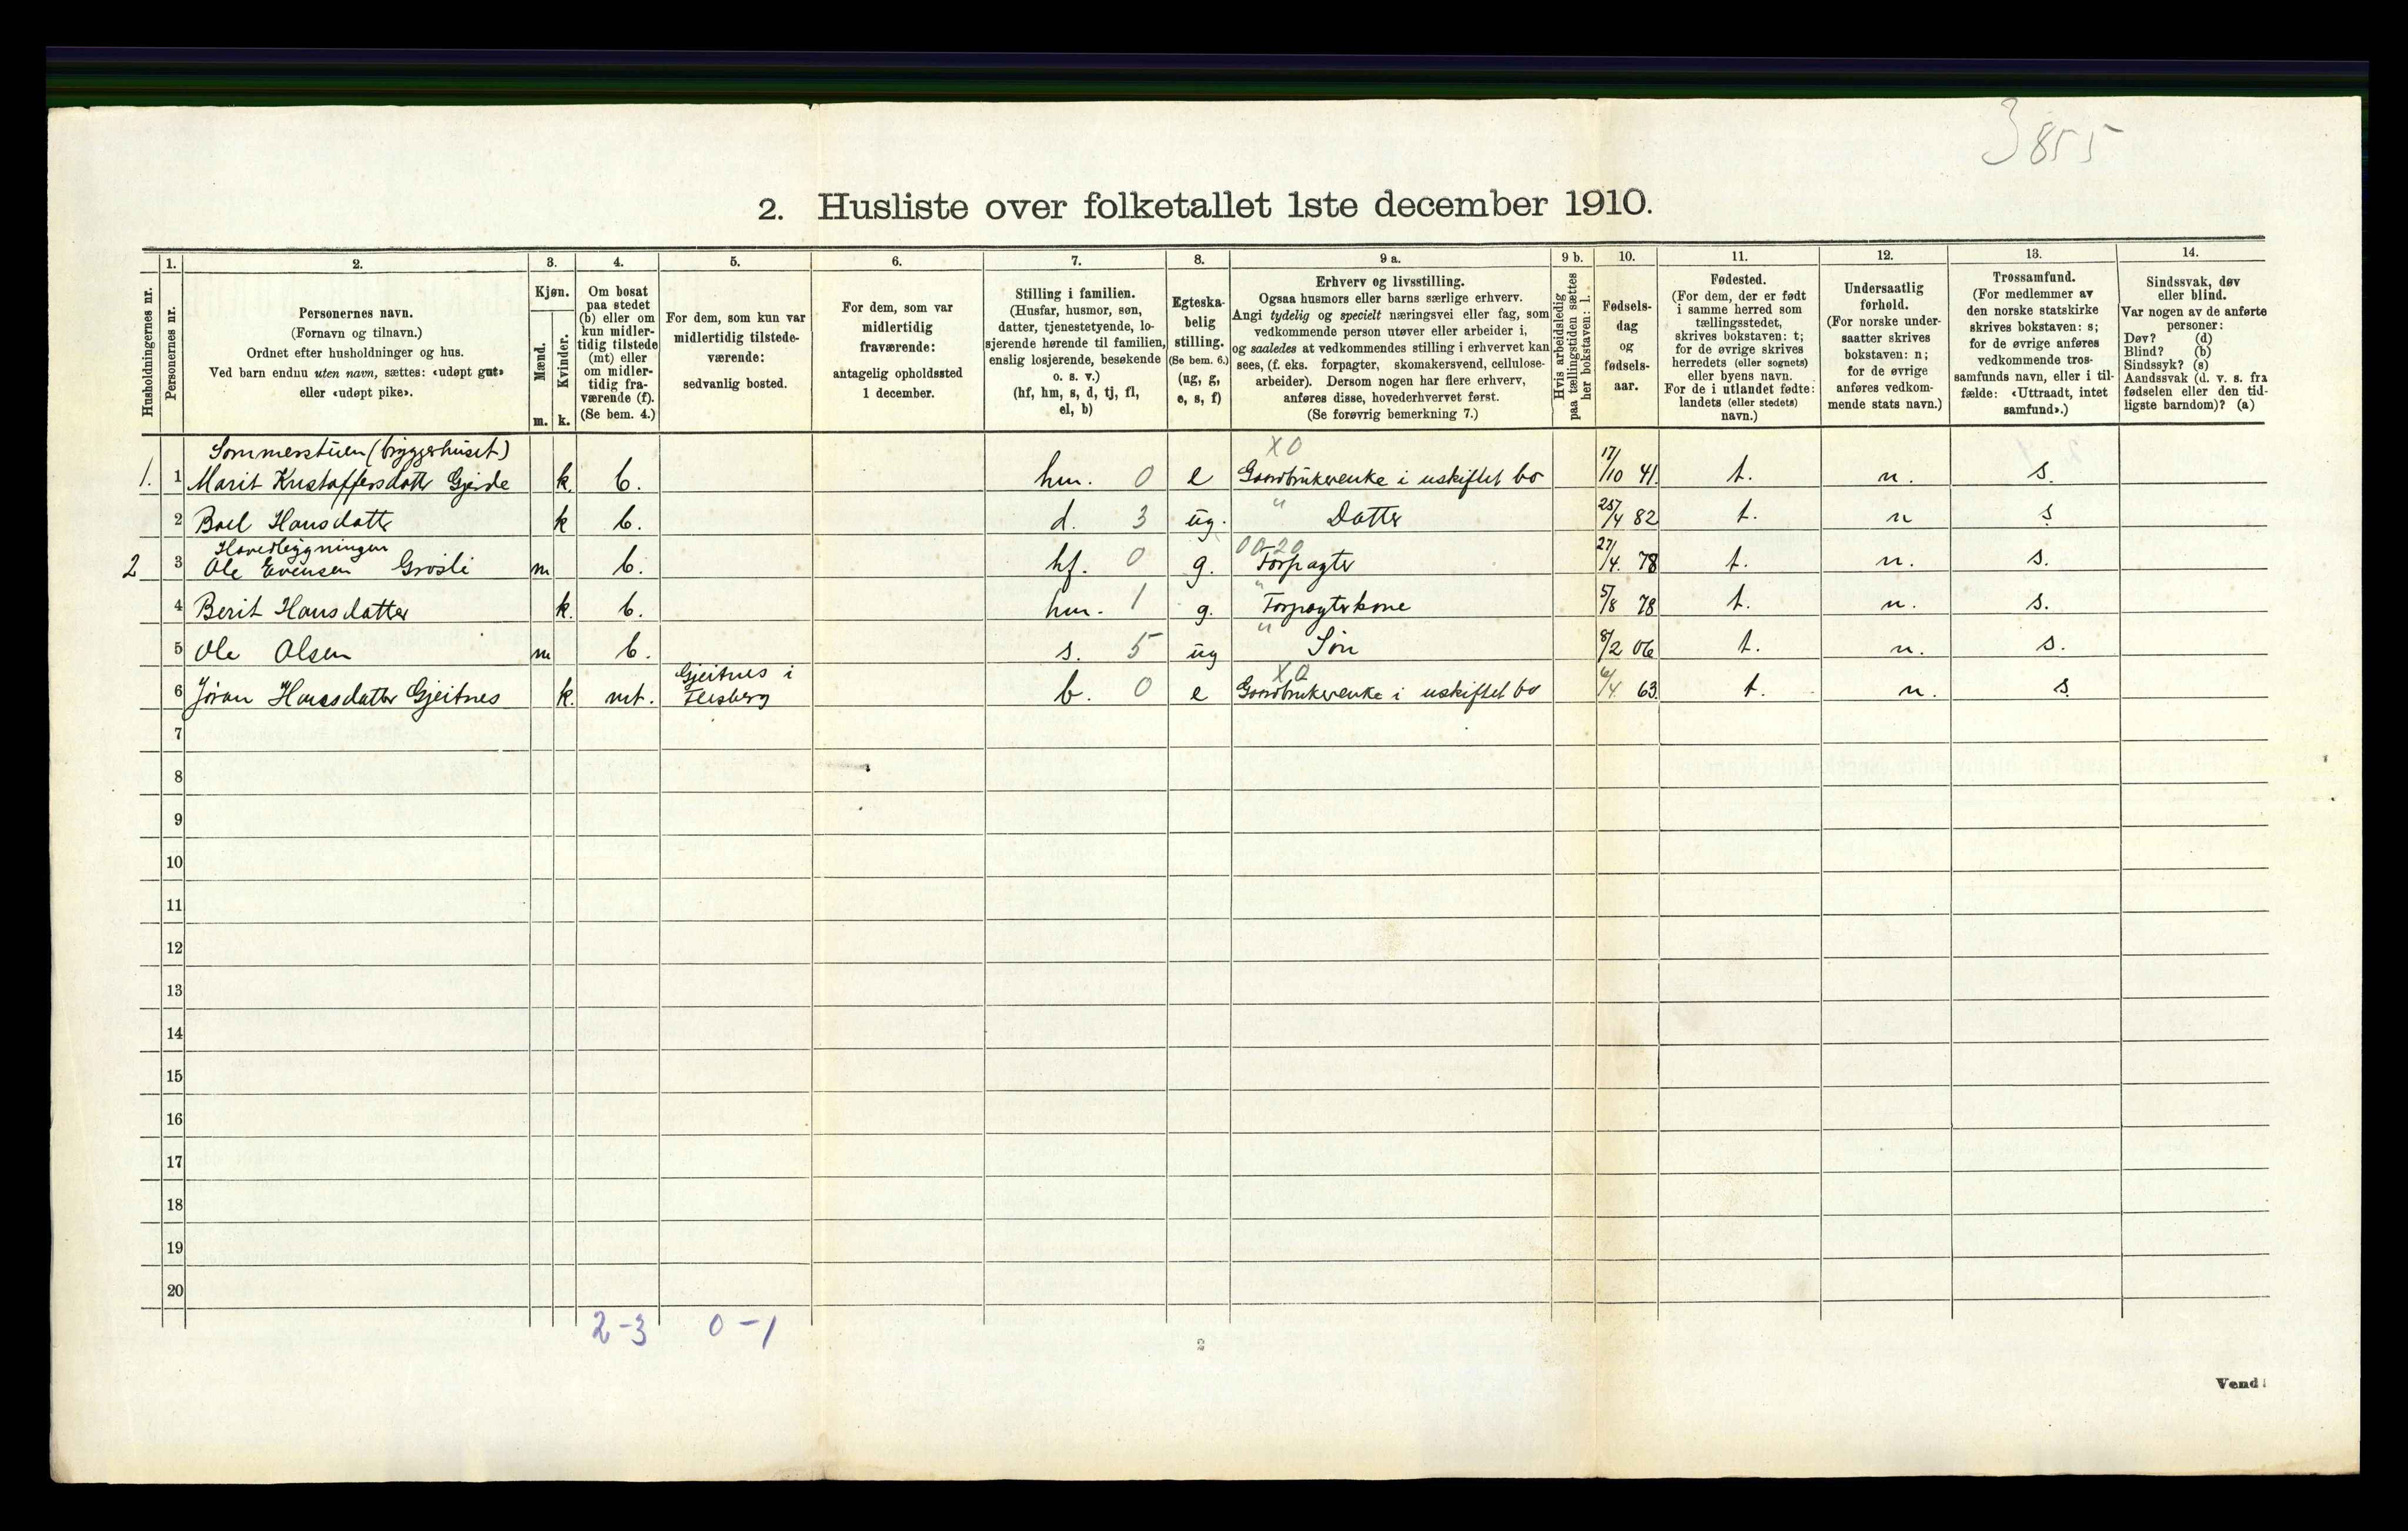 3855
2. Husliste over folketallet 1ste december 1910.
Husholdningernes nr.
1.
Personernes nr.
2.
Personernes navn.
(Fornavn og tilnavn.)
Ordnet efter husholdninger og hus.
Ved barn endnu uten navn, sættes: «udøpt gut»
eller «udøpt pike».
3.
Kjøn.
Mænd.
Kvinder.
m. k.
4.
Om bosat
paa stedet
(b) eller om
kun midler-
tidig tilstede
(mt) eller
om midler-
tidig fra-
værende (f).
(Se bem. 4.)
5.
For dem, som kun var
midlertidig tilstede-
værende:
sedvanlig bosted.
6.
For dem, som var
midlertidig
fraværende:
antagelig opholdssted
1 december.
7.
Stilling i familien.
(Husfar, husmor, søn,
datter, tjenestetyende, lo-
sjerende hørende til familien,
enslig losjerende, besøkende
o. s. v.)
(hf, hm, s, d, tj, fl,
el, b)
8.
Egteska-
belig
stilling.
(Se bem. 6.)
(ug, g,
e, s, f)
9 a.
Erhverv og livsstilling.
Ogsaa husmors eller barns særlige erhverv.
Angi tydelig og specielt næringsvei eller fag, som
vedkommende person utøver eller arbeider i,
og saaledes at vedkommendes stilling i erhvervet kan
sees, (f. eks. forpagter, skomakersvend, cellulose-
arbeider). Dersom nogen har flere erhverv,
anføres disse, hovederhvervet først.
(Se forøvrig bemerkning 7.)
9 b.
Hvis arbeidsledig
paa tællingstiden sættes
her bokstaven: l.
10.
Fødsels-
dag
og
fødsels-
aar.
11.
Fødested.
(For dem, der er født
i samme herred som
tællingsstedet,
skrives bokstaven: t;
for de øvrige skrives
herredets (eller sognets)
eller byens navn.
For de i utlandet fødte:
landets (eller stedets)
navn.)
12.
Undersaatlig
forhold.
(For norske under-
saatter skrives
bokstaven: n;
for de øvrige
anføres vedkom-
mende stats navn.)
13.
Trossamfund.
(For medlemmer av
den norske statskirke
skrives bokstaven: s;
for de øvrige anføres
vedkommende tros-
samfunds navn, eller i til-
fælde: «Uttraadt, intet
samfund».)
14.
Sindssvak, døv
eller blind.
Var nogen av de anførte
personer:
Døv? (d)
Blind? (b)
Sindssyk? (s)
Aandssvak (d. v. s. fra
fødselen eller den tid-
ligste barndom)? (a)
Sommerstuen (bryggerhuset) X0
1. 1 Marit Kristoffersdatter Gjerde k. b. hm. 0 e Gaardbrukerenke i uskiftet bo 17/10 41. t. n. s.
2 Boel Hansdatter k b. d. 3 ug. " Datter 25/4 82 t. n s
Hovedbygningen 00-20
2 3 Ole Evensen Grøsli m b. hf. 0 g. Forpagter 27/4. 78 t. n. s.
4 Berit Hansdatter k. b. hm. 1 g. " Forpagterkone 5/8 78 t. n. s.
5 Ole Olsen m b. s. 5 ug " Søn 8/2 06 t. n. s.
Gjeitnes i X0
6 Jøran Hansdatter Gjeitnes k. mt. Flesberg b. 0 e Gaardbrukerenke i uskiftet bo 6/4 63. t. n. s.
7
8
9
10
11
12
13
14
15
16
17
18
19
20
2-3 0-1
2
Vend!